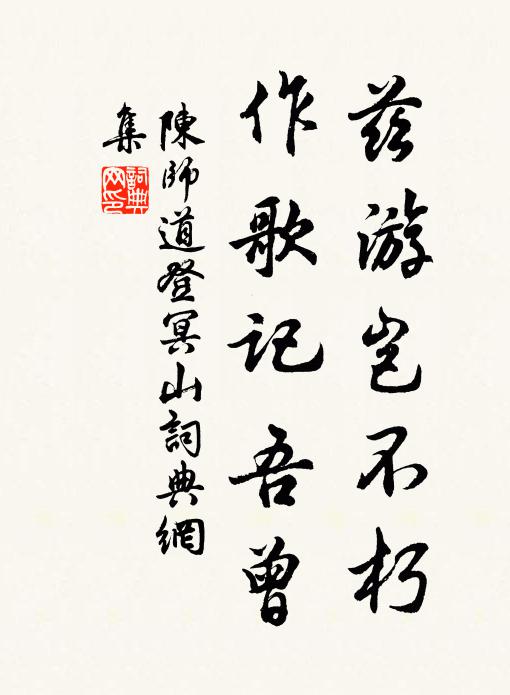 茲游豈不朽
作歌記吾曾
陳師道登冥山詞典網
集
詞典
网印